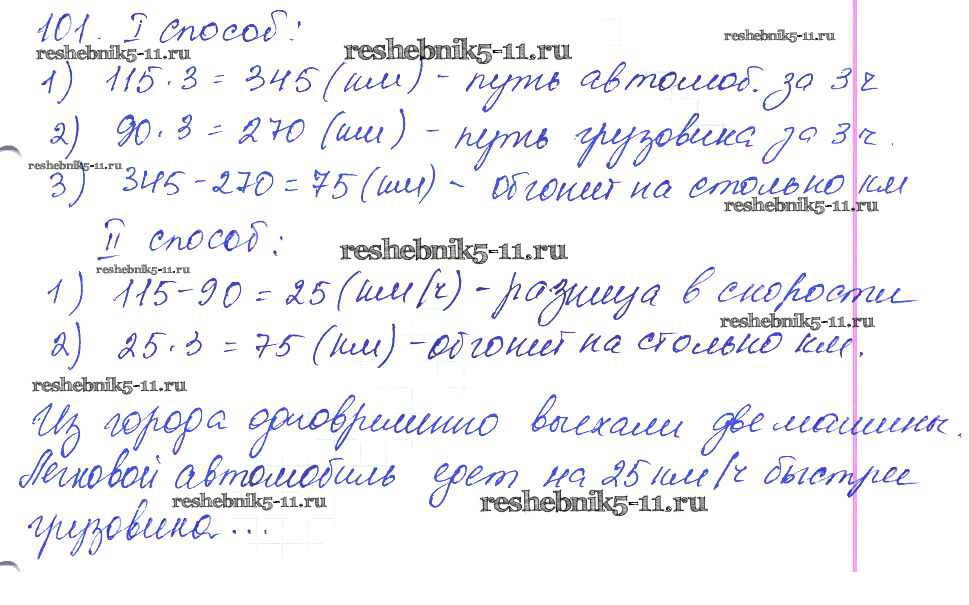 101. I способ:
reshebnik5-11.ru reshebnik5-11.ru reshebnik5-11.ru
1) 115·3 = 345 (км) - путь автомоб. за 3 ч
2) 90·3 = 270 (км) - путь грузовика за 3 ч.
reshebnik5-11.ru
3) 345-270=75 (км) - обгонит на столько км
reshebnik5-11.ru
II способ:
reshebnik5-11.ru
reshebnik5-11.ru
1) 115-90=25 (км/ч) - разница в скорости
reshebnik5-11.ru
2) 25·3 = 75 (км) - обгонит на столько км.
reshebnik5-11.ru
Из города одновременно выехали две машины.
Легковой автомобиль едет на 25 км/ч быстрее
reshebnik5-11.ru reshebnik5-11.ru
грузовика...